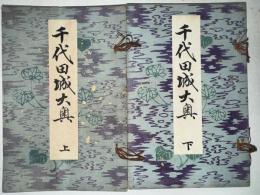 千代田城大奥
上
千代田城大奥
下